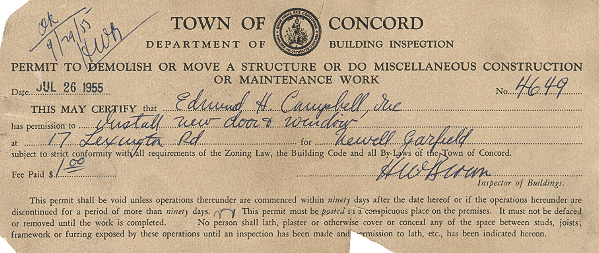 Ok
9/29/55
HWB
TOWN OF CONCORD
DEPARTMENT OF BUILDING INSPECTION
PERMIT TO DEMOLISH OR MOVE A STRUCTURE OR DO MISCELLANEOUS CONSTRUCTION
OR MAINTENANCE WORK
Date JUL 26 1955 No. 4649
THIS MAY CERTIFY that Edmund H. Campbell, Inc
has permission to Install new door & window
at 17 Lexington Rd for Newell Garfield
subject to strict conformity with all requirements of the Zoning Law, the Building Code and all By-Laws of the Town of Concord.
Fee Paid $1.00 HWBrown
Inspector of Buildings.
This permit shall be void unless operations thereunder are commenced within ninety days after the date hereof or if the operations hereunder are
discontinued for a period of more than ninety days. This permit must be posted in a conspicious place on the premises. It must not be defaced
or removed until the work is completed. No person shall lath, plaster or otherwise cover or conceal any of the space between studs, joists;
framework or furring exposed by these operations until an inspection has been made and permission to lath, etc., has been indicated hereon.